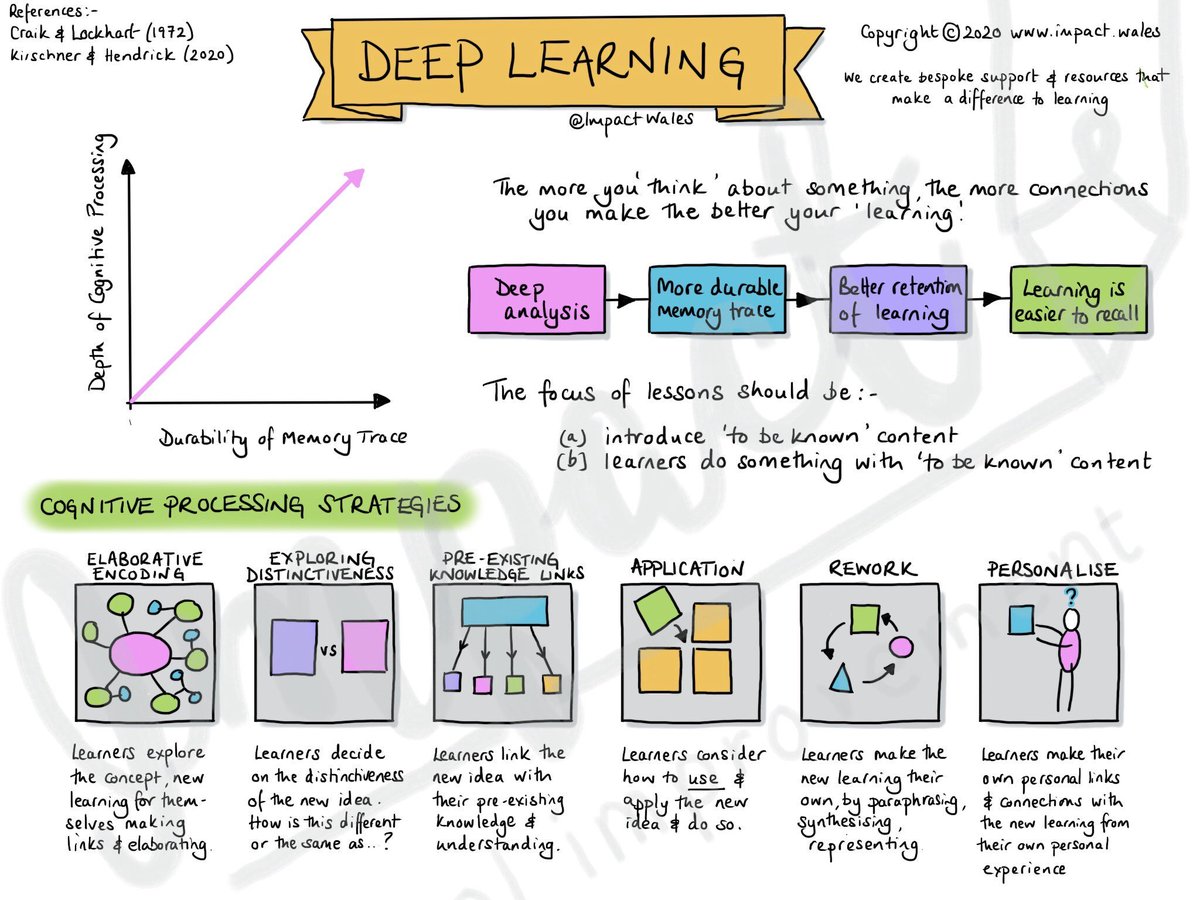 References:-
Craik & Lockhart (1972)
Kirschner & Hendrick (2020)
DEEP LEARNING
@Impact Wales
Copyright ©2020 www.impact.wales
We create bespoke support & resources that
make a difference to learning
Depth of Cognitive Processing
Durability of Memory Trace
The more you 'think' about something, the more connections
you make the better your 'learning'.
Deep
analysis
More durable
memory trace
Better retention
of learning
Learning is
easier to recall
The focus of lessons should be:-
(a) introduce 'to be known' content
(b) learners do something with 'to be known' content
COGNITIVE PROCESSING STRATEGIES
ELABORATIVE
ENCODING
Learners explore
the concept, new
learning for them-
selves making
links & elaborating.
EXPLORING
DISTINCTIVENESS
VS
Learners decide
on the distinctiveness
of the new idea.
How is this different
or the same as..?
PRE-EXISTING
KNOWLEDGE LINKS
Learners link the
new idea with
their pre-existing
knowledge &
understanding.
APPLICATION
Learners consider
how to use &
apply the new
idea & do so.
REWORK
Learners make the
new learning their
own, by paraphrasing,
synthesising,
representing.
PERSONALISE
?
Learners make their
own personal links
& connections with
the new learning from
their own personal
experience
Impact
improvement